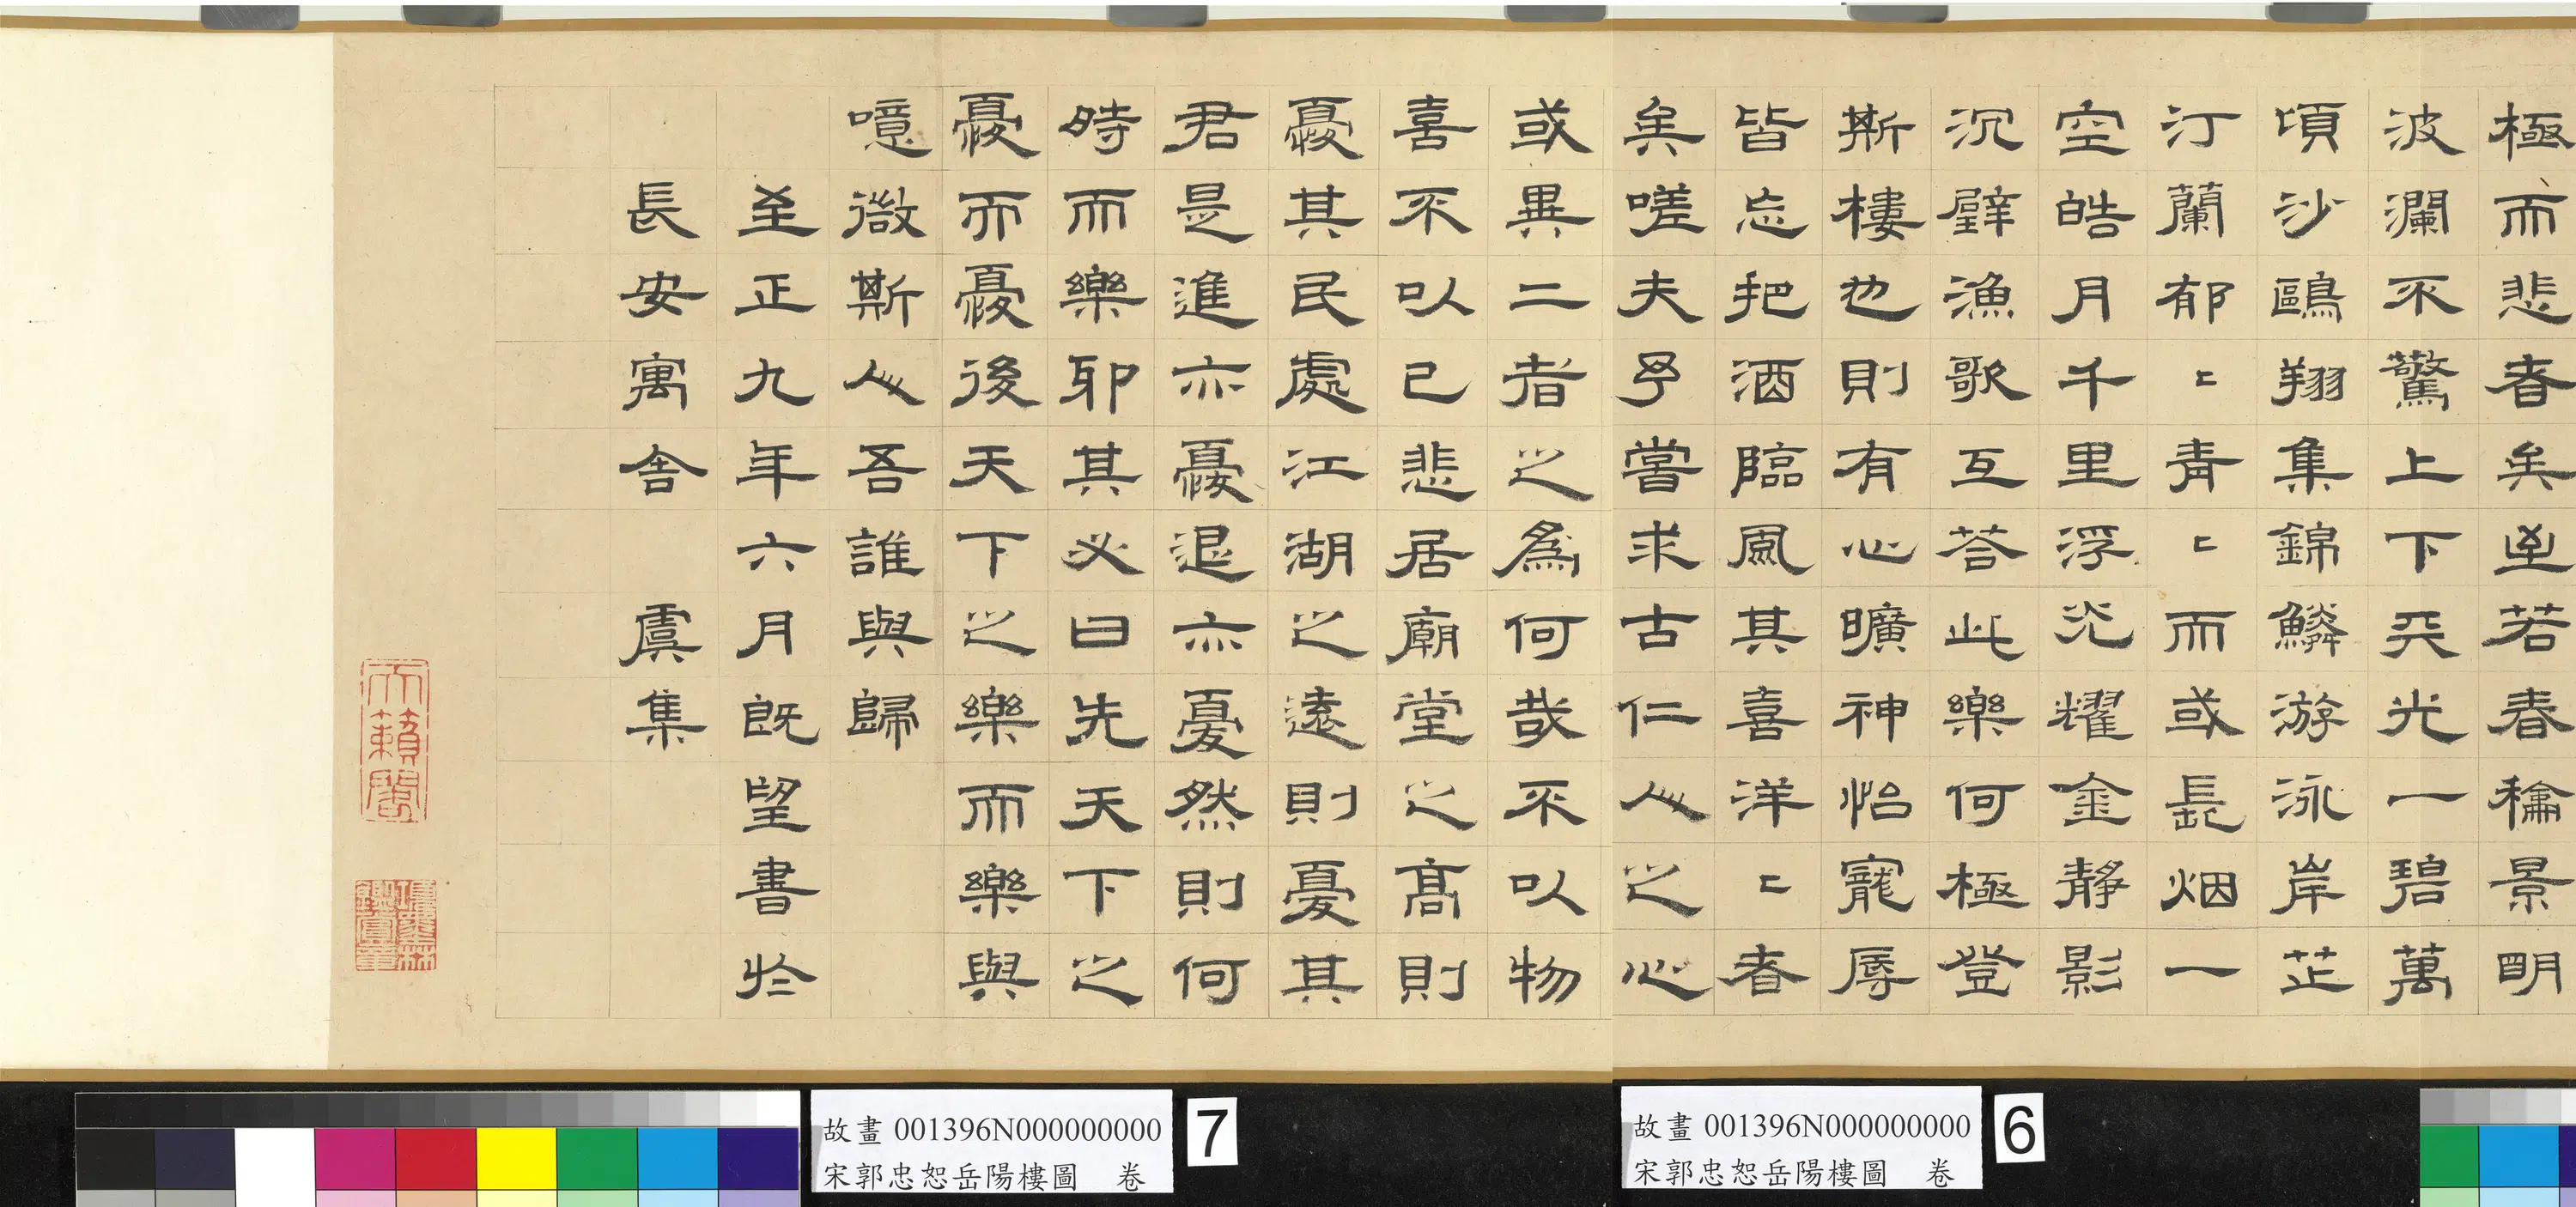 極而悲者矣至若春穐景明
波瀾不驚上下天光一碧萬
頃沙鷗翔集錦鱗游泳岸芷
汀蘭郁〻青〻而或長烟一
空皓月千里浮光耀金靜影
沉璧漁歌互荅此樂何極登
斯樓也則有心曠神怡寵辱
皆忘把酒臨風其喜洋〻者
矣嗟夫予嘗求古仁人之心
或異二者之為何哉不以物
喜不以己悲居廟堂之高則
憂其民處江湖之遠則憂其
君是進亦憂退亦憂然則何
時而樂耶其必曰先天下之
憂而憂後天下之樂而樂與
噫微斯人吾誰與歸
至正九年六月既望書於
長安寓舍 虞集
天籟閣
項墨林鑑賞章
故畫 001396N000000000
宋郭忠恕岳陽樓圖 卷
6
故畫 001396N000000000
宋郭忠恕岳陽樓圖 卷
7